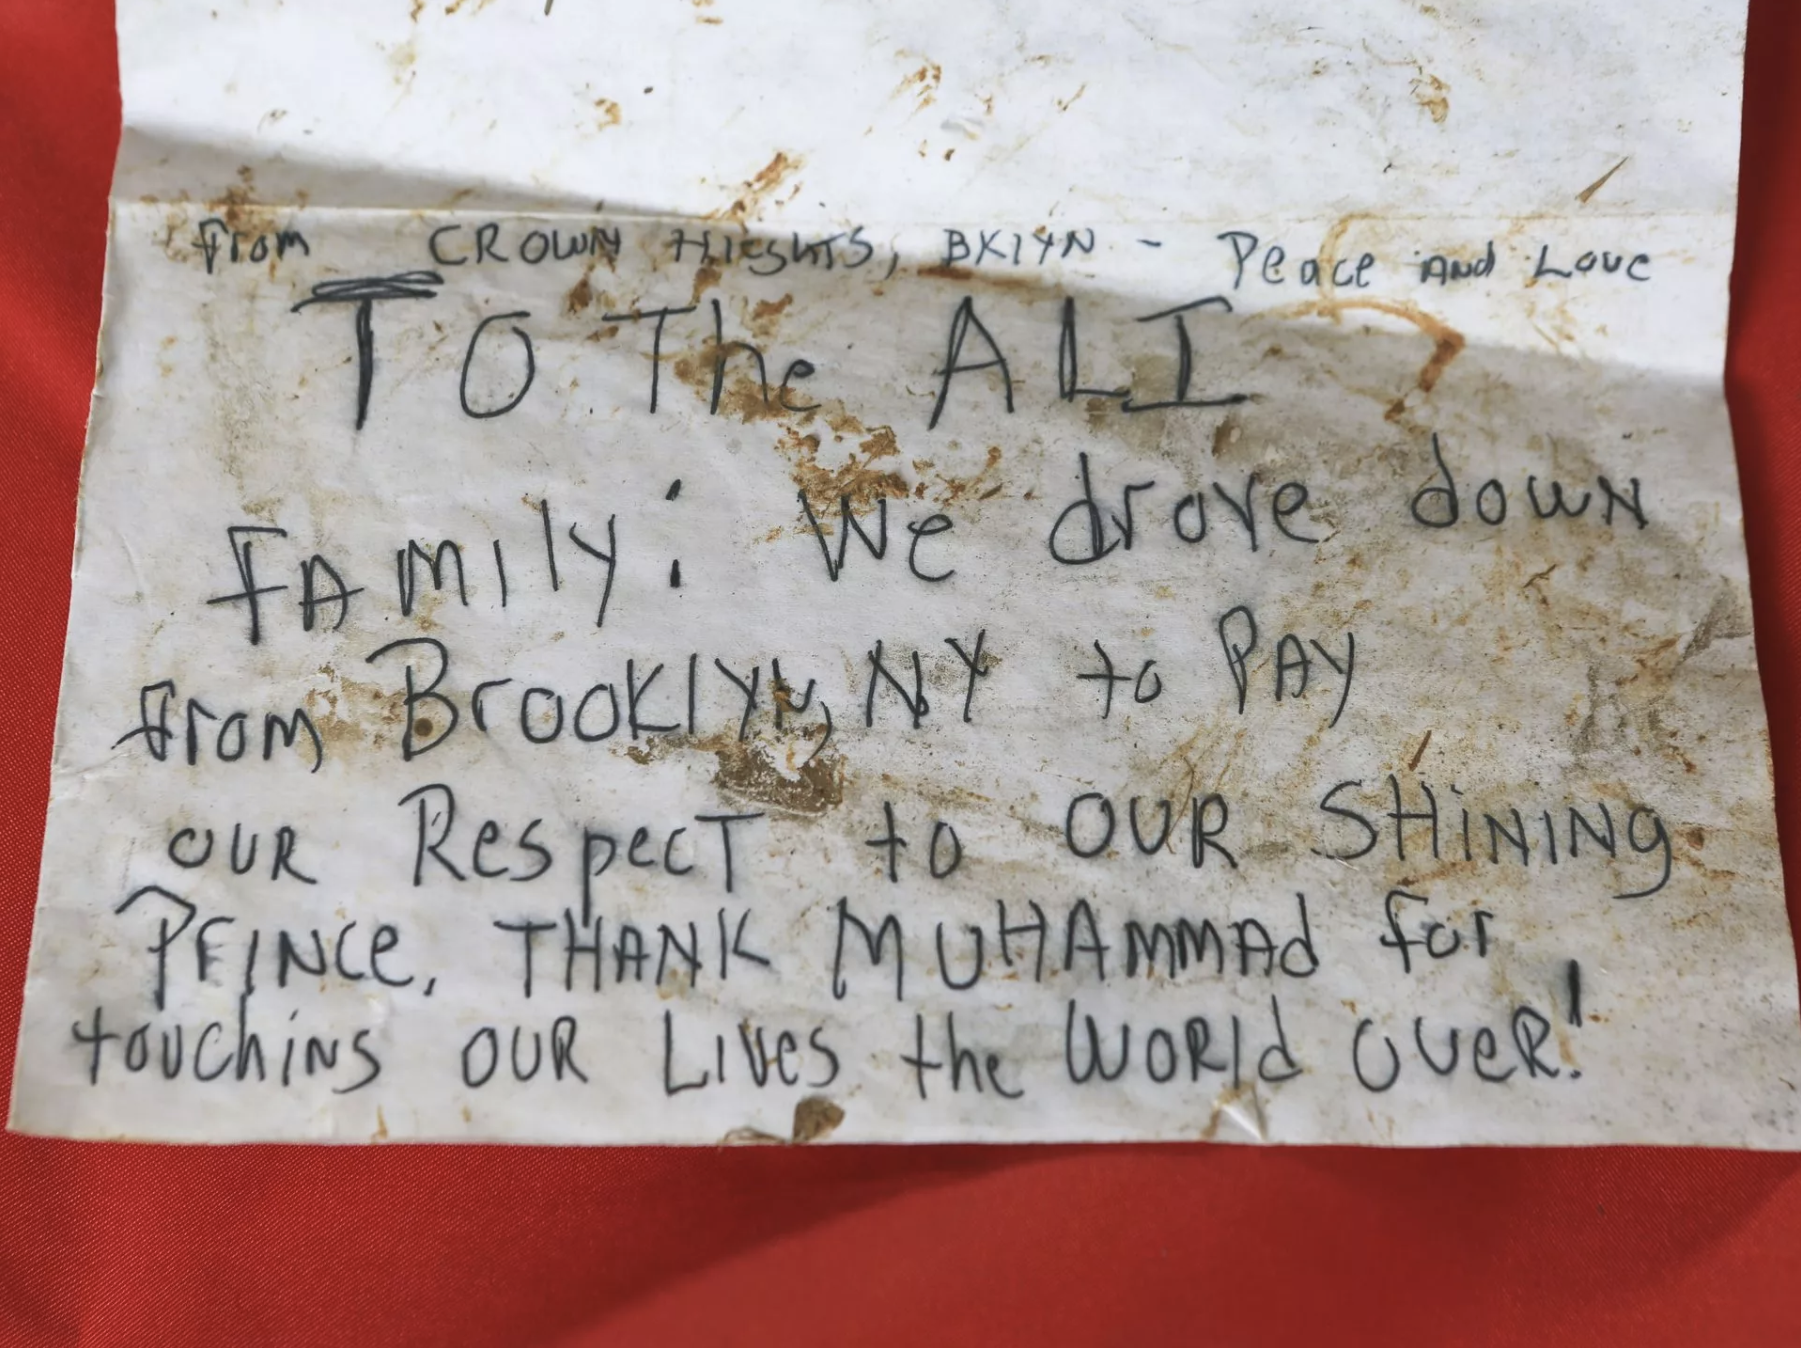 from CROWN HIEghTS, BKlYN - Peace AND Love
TO The ALI
FAMIly: We drove down
from BrooKlYN, NY to PAY
OUR RespecT to OUR SHiNiNg
PRINCe, THANK MUHAMMAd for
touching OUR Lives the WORld OveR!